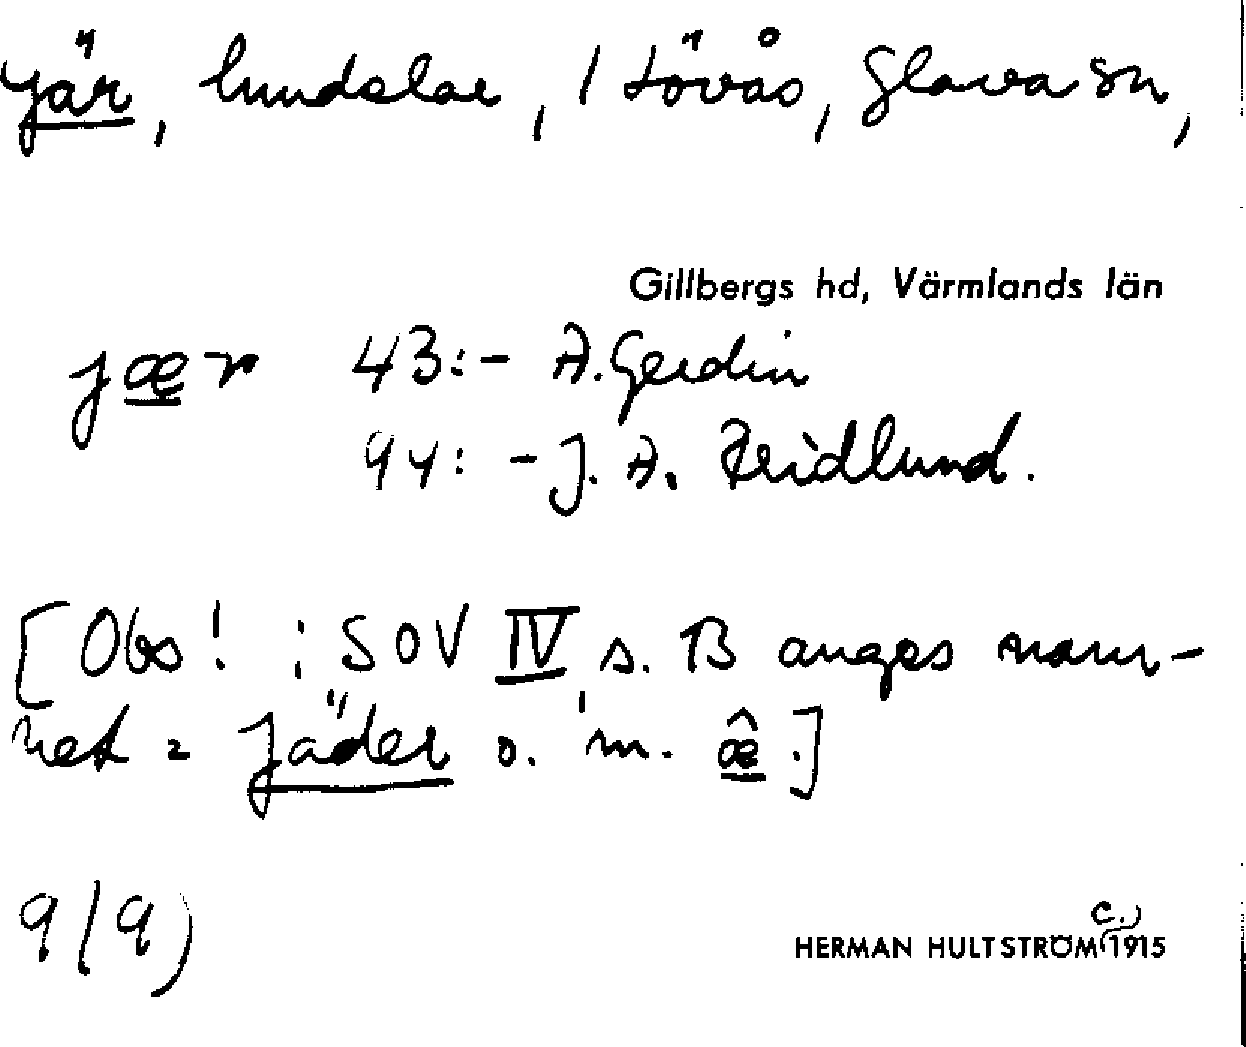 Jär, hundelar, 1 Lövås, Glava sn,
Gillbergs hd, Värmlands län
jær 43:- A. Gerdin
94: - J. A. Reidlund.
[Obs! i SOV IV s. 13 anges nam-
net = Jäder o. m. æ̂.]
9/9)
c.)
HERMAN HULTSTRÖM 1915